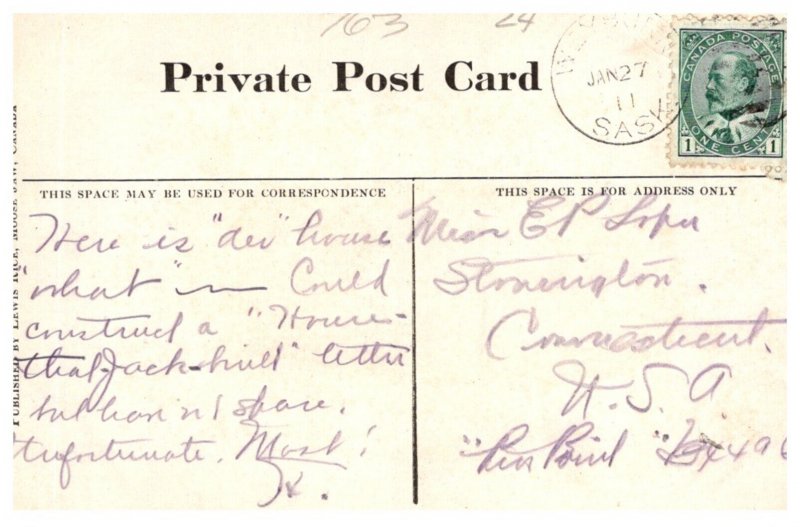 163 24
Private Post Card
JAN 27
11
SASK
CANADA POSTAGE
1 ONE CENT 1
THIS SPACE MAY BE USED FOR CORRESPONDENCE
THIS SPACE IS FOR ADDRESS ONLY
PUBLISHED BY LEWIS RICE, MOOSE JAW, CANADA
Here is "dei" house
"what" — Could
construct a "House-
that-Jack-built" letter
but havn't space.
Unfortunate. Most!
Miss E P
Stonington.
Connecticut.
U. S. A
"Pen Point"